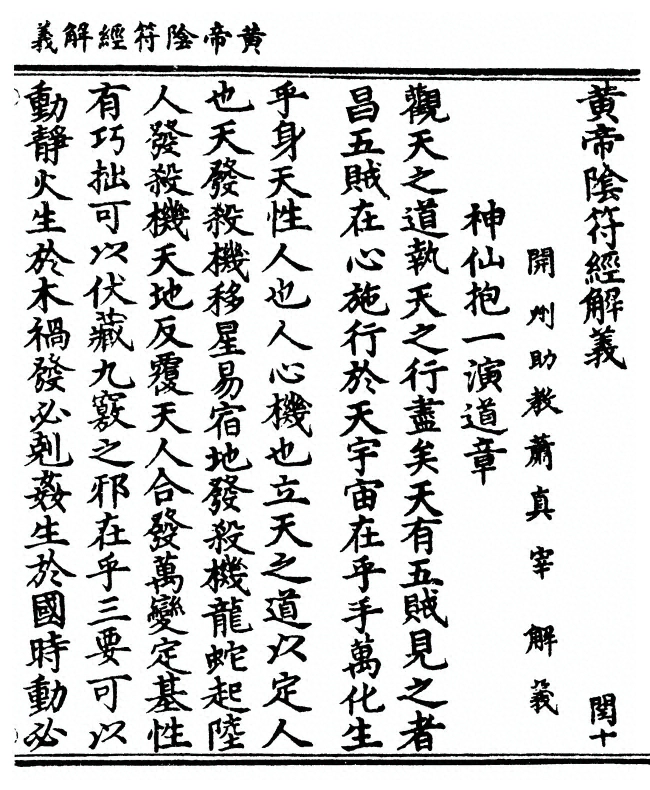 黃帝陰符經解義
黃帝陰符經解義
閏十
開州助教蕭真宰 解義
神仙抱一演道章
觀天之道執天之行盡矣天有五賊見之者
昌五賊在心施行於天宇宙在乎手萬化生
乎身天性人也人心機也立天之道以定人
也天發殺機移星易宿地發殺機龍蛇起陸
人發殺機天地反覆天人合發萬變定基性
有巧拙可以伏藏九竅之邪在乎三要可以
動靜火生於木禍發必剋姦生於國時動必